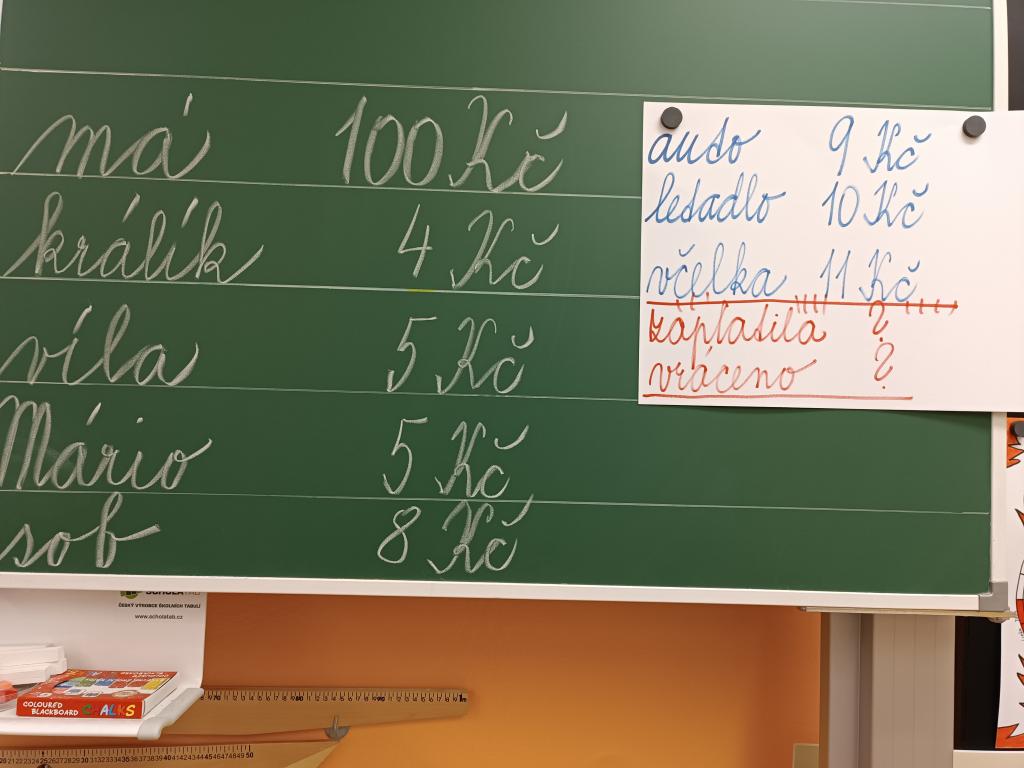 má 100 Kč
králík 4 Kč
víla 5 Kč
Mário 5 Kč
sob 8 Kč
auto 9 Kč
letadlo 10 Kč
včelka 11 Kč
zaplatila ?
vráceno ?
ČESKÝ VÝROBCE ŠKOLNÍCH TABULÍ
www.scholatab.cz
COLOURED
BLACKBOARD CHALKS